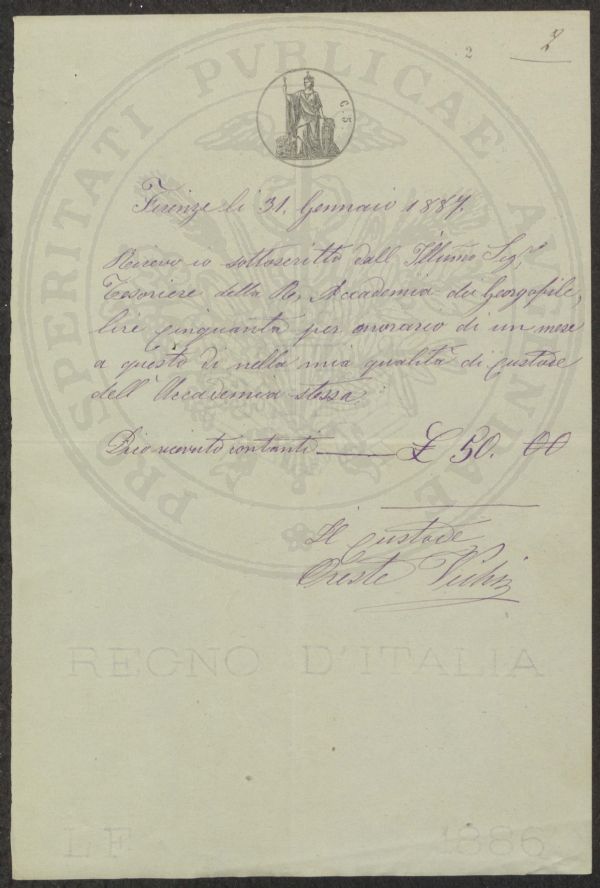 2
2
C. 5.
Firenze li 31. Gennaio 1887.
Ricevo io sottoscritto dall' Illmo Sigr
Tesoriere della Re. Accademia dei Georgofile,
lire cinquanta per onorario di un mese
a questo dì nella mia qualità di custode
dell' Accademia stessa
Dico ricevuto contanti — £ 50. 00
Il custode
Oreste
PROSPERITATI PVBLICAE AVGENDAE
REGNO D'ITALIA
LF 1886